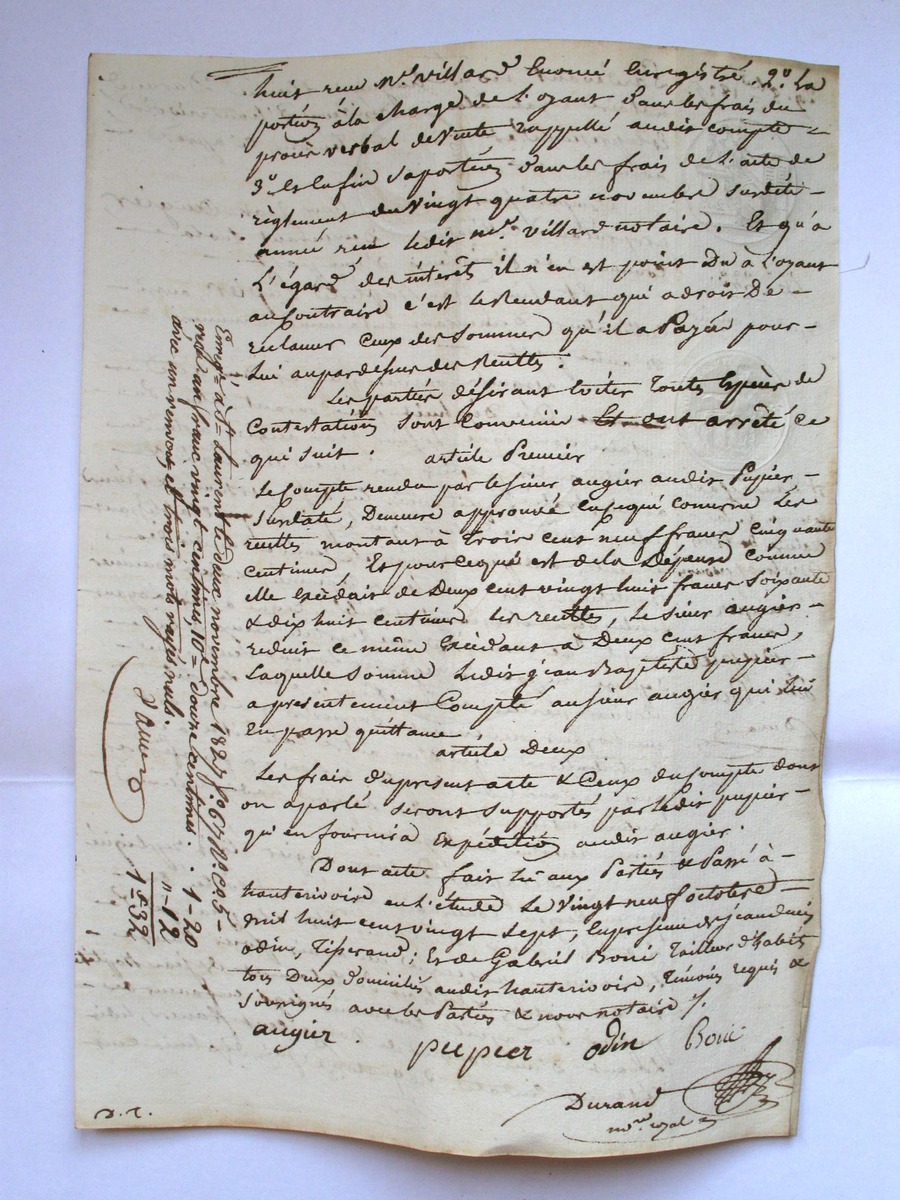 huit reçu Me. villard Enoncé Enregistré. 2°. La
portion à la charge de L'oyant dans les frais du
procès verbal de Vente rappellé audit compte =
3°. Et Enfin sa portion dans les frais de L'acte de
règlement du vingt quatre novembre susdite
année reçu ledit Me. villard notaire. Et qu'à
L'égard des intérêts il n'en est point dû à l'oyant
au Contraire c'est le Rendant qui a droit De
réclamer Ceux des Sommes qu'il a Payées pour
Lui au par dessus des Recettes.
Les parties désirant Eviter Toutes Espèces de
Contestations sont Convenues Et ont arrêté ce
qui suit. article Premier
Le Compte rendu par le sieur augier audit Pupier
Susdaté, Demeure approuvé En ce qui concerne Les
recettes montant à trois cent neuf francs cinquante
centimes. Et pour ce qui est de la Dépense comme
elle excédait de Deux cent vingt huit francs Soixante
& dix huit centimes les recettes, le sieur augier
reduit ce même Excédant à Deux cent francs,
Laquelle somme Ledit jean Baptiste pupier
a présentement Compté au sieur augier qui Lui
En passe quittance
article Deux
Les frais du present acte & Ceux du Compte dont
on a parlé seront supportés par ledit pupier
qui en fournira Expédition audit augier.
Dont acte fait Lu aux Parties & Passé à
hauterivoire en L'étude Le vingt neuf octobre
mil huit cent vingt sept, En présence de jean
odin, Tisserand; Et de Gabriel Boni Tailleur d'habits
tous Deux Domiciliés audit hauterivoire, Témoins requis &
Soussignés avec les Parties & nous notaire /.
augier pupier odin Boni
Durand
nore royal
D. R.
Enregé à St Laurent le deux novembre 1827 fo 67 Ro Ces 5
reçu un franc vingt centimes 10e douze centimes. 1-20
avec un renvoi et trois mots rayés nuls. "-12
1f 32